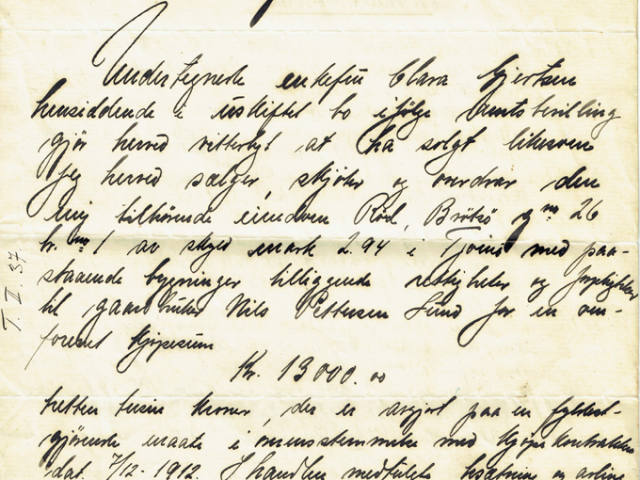 Undertegnede enkefru Clara Gjertsen
hensiddende i uskiftet bo ifølge amtsbevilling
gjør herved vitterligt at ha solgt likesom
jeg herved sælger, skjøter og overdrar den
mig tilhörende eiendom Röd, Brötsö g. no 26
br. no 1 av skyld mark 2.94 i Tjömö med paa-
staaende bygninger tilliggende rettigheter og forpligtelser
til gaardbruker Nils Pettersen Sund for en om-
forenet kjøpesum
Kr. 13000.00
tretten tusin kroner, der er avgjort paa en fyldest-
gjörende maate i overensstemmelse med kjøpekontrakten
dat. 7/12-1912. I handlen medfulgte besætning og avling
T. II. 37